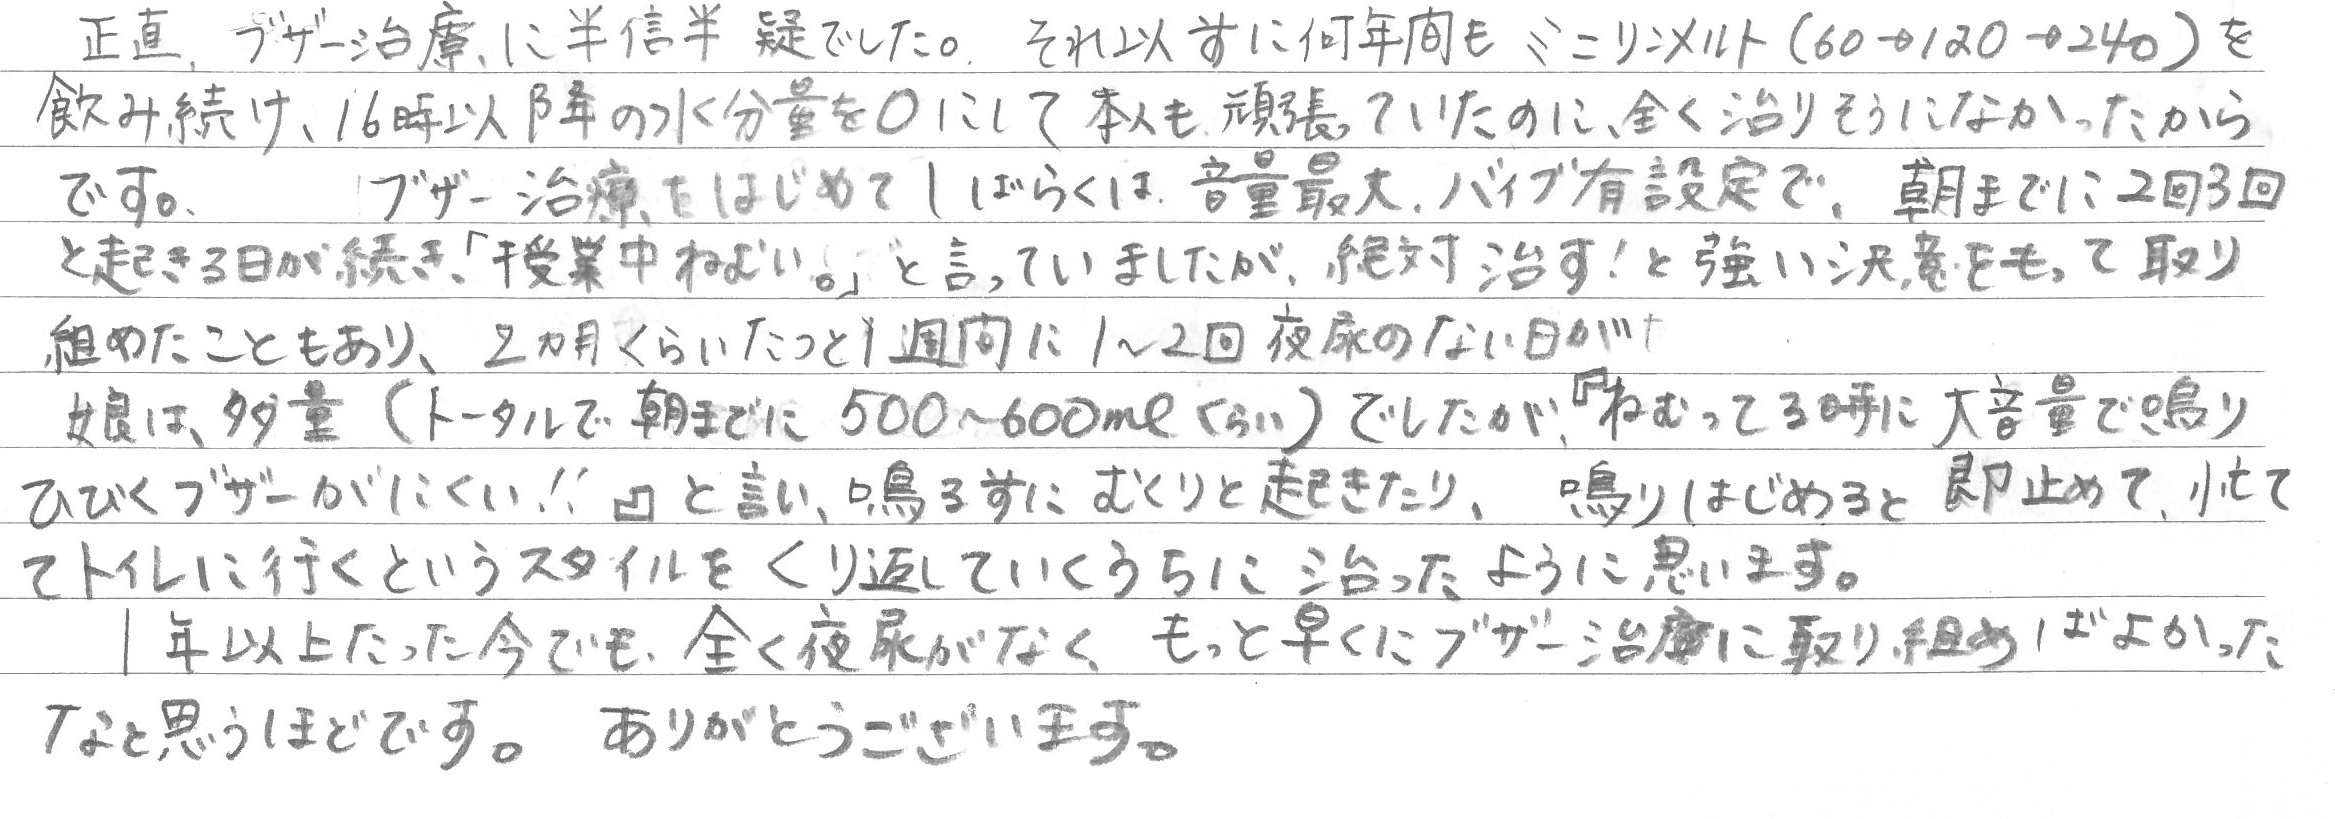 正直、ブザー治療に半信半疑でした。それ以前に何年間もミニリンメルト(60→120→240)を
飲み続け、16時以降の水分量を0にして本人も頑張っていたのに、全く治りそうになかったから
です。 ブザー治療をはじめてしばらくは音量最大、バイブ有設定で、朝までに2回3回
と起きる日が続き、「授業中ねむい。」と言っていましたが、絶対治す!と強い決意をもって取り
組めたこともあり、2カ月くらいたつと1週間に1~2回夜尿のない日が
娘は、多量(トータルで朝までに500~600mlくらい)でしたが、『ねむってる時に大音量で鳴り
ひびくブザーがにくい!!』と言い、鳴る前にむくりと起きたり、鳴りはじめると即止めて、慌て
てトイレに行くというスタイルをくり返していくうちに治ったように思います。
1年以上たった今でも、全く夜尿がなく、もっと早くにブザー治療に取り組めばよかった
なと思うほどです。 ありがとうございます。